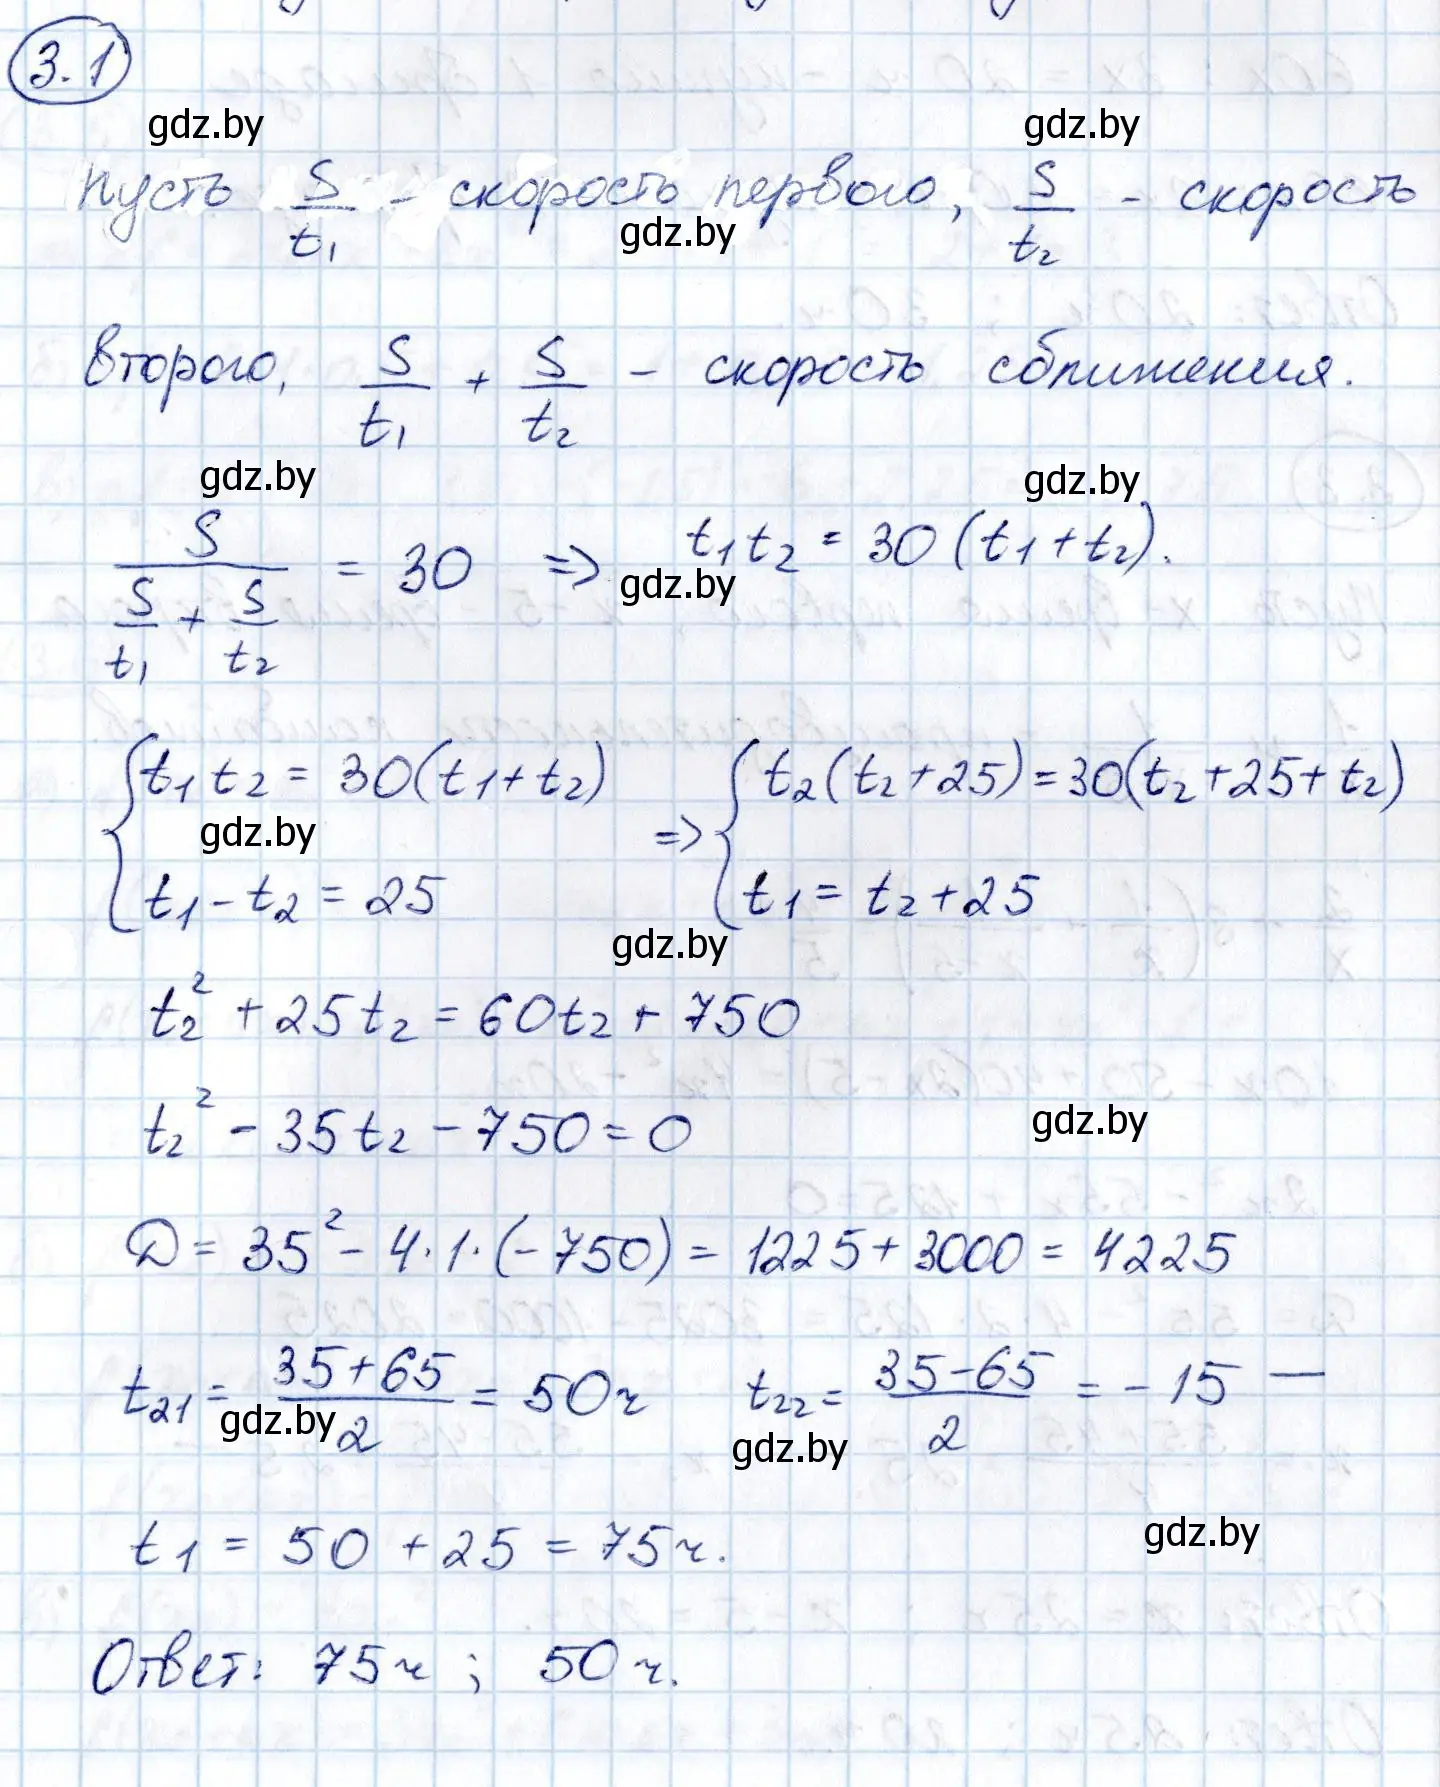 3.1
gdz.by gdz.by
Пусть S/t₁ - скорость первого, S/t₂ - скорость
gdz.by
второго, S/t₁ + S/t₂ - скорость сближения.
gdz.by gdz.by
S/(S/t₁ + S/t₂) = 30 => t₁t₂ = 30(t₁+t₂).
gdz.by
{t₁t₂ = 30(t₁+t₂) => {t₂(t₂+25)=30(t₂+25+t₂)
gdz.by
t₁-t₂ = 25 t₁ = t₂+25
gdz.by
t₂² + 25t₂ = 60t₂ + 750
t₂² - 35t₂ - 750 = 0
gdz.by
D = 35² - 4·1·(-750) = 1225 + 3000 = 4225
t₂₁ = (35+65)/2 = 50ч t₂₂ = (35-65)/2 = -15 —
gdz.by gdz.by
t₁ = 50 + 25 = 75ч.
gdz.by
Ответ: 75ч ; 50ч.